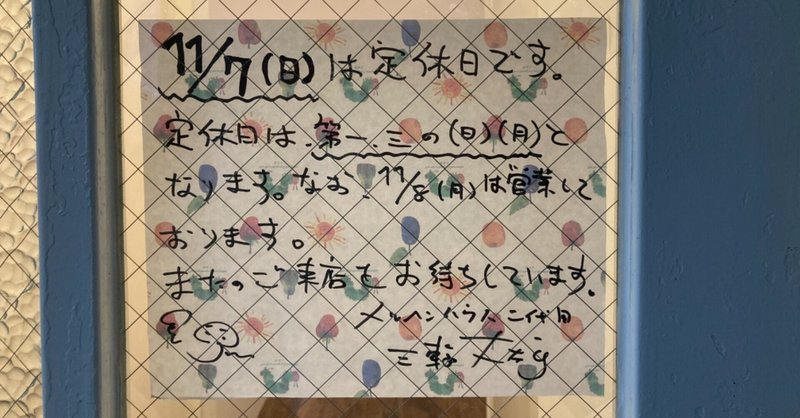 11/7(日)は定休日です。
定休日は、第一、三の(日)(月)と
なります。なお、11/8(月)は営業して
おります。
またのご来店をお待ちしています。
メルヘンハウス二代目
三輪